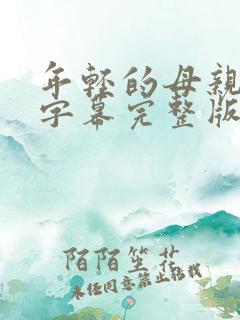 年轻的母亲
字幕完整版
陌陌笙花
未经同意禁止转载